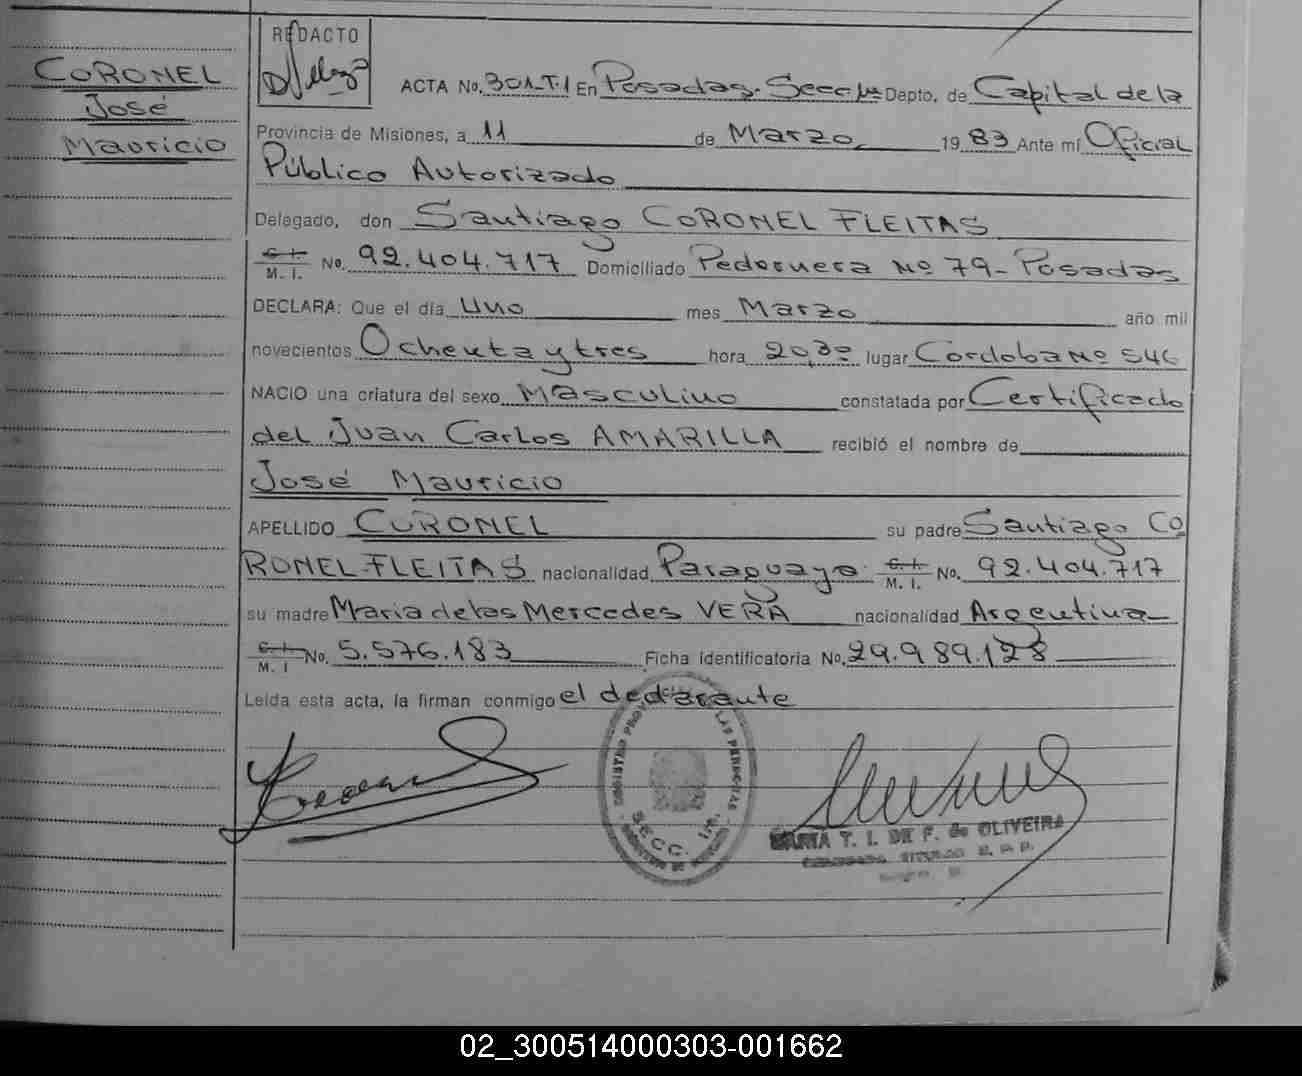 CORONEL
José
Mauricio
REDACTO
ACTA No. 301_T.1 En Posadas. Secc 1ra Depto. de Capital de la
Provincia de Misiones, a 11 de Marzo 1983 Ante mí Oficial
Público Autorizado
Delegado, don Santiago CORONEL FLEITAS
C. I.
M. I. No. 92.404.717 Domiciliado Pedernera No 79_ Posadas
DECLARA: Que el día Uno mes Marzo año mil
novecientos Ochenta y tres hora 20,30 lugar Cordoba No 546
NACIO una criatura del sexo Masculino constatada por Certificado
del Juan Carlos AMARILLA recibió el nombre de
José Mauricio
APELLIDO CORONEL su padre Santiago CO
RONEL FLEITAS nacionalidad Paraguaya C. I.
M. I. No. 92.404.717
su madre Maria de las Mercedes VERA nacionalidad Argentina
C. I.
M. I No. 5.576.183 Ficha identificatoria No. 29.989.128
Leída esta acta, la firman conmigo el declarante
REGISTRO PROV. DE LAS PERSONAS
SECC. 1ra.
MARIA T. I. DE F. de OLIVEIRA
02_300514000303-001662